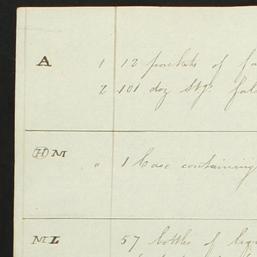 A 1 12 pockets of
2 101 doz
H M " 1 Case containing
ML 57 bottles of